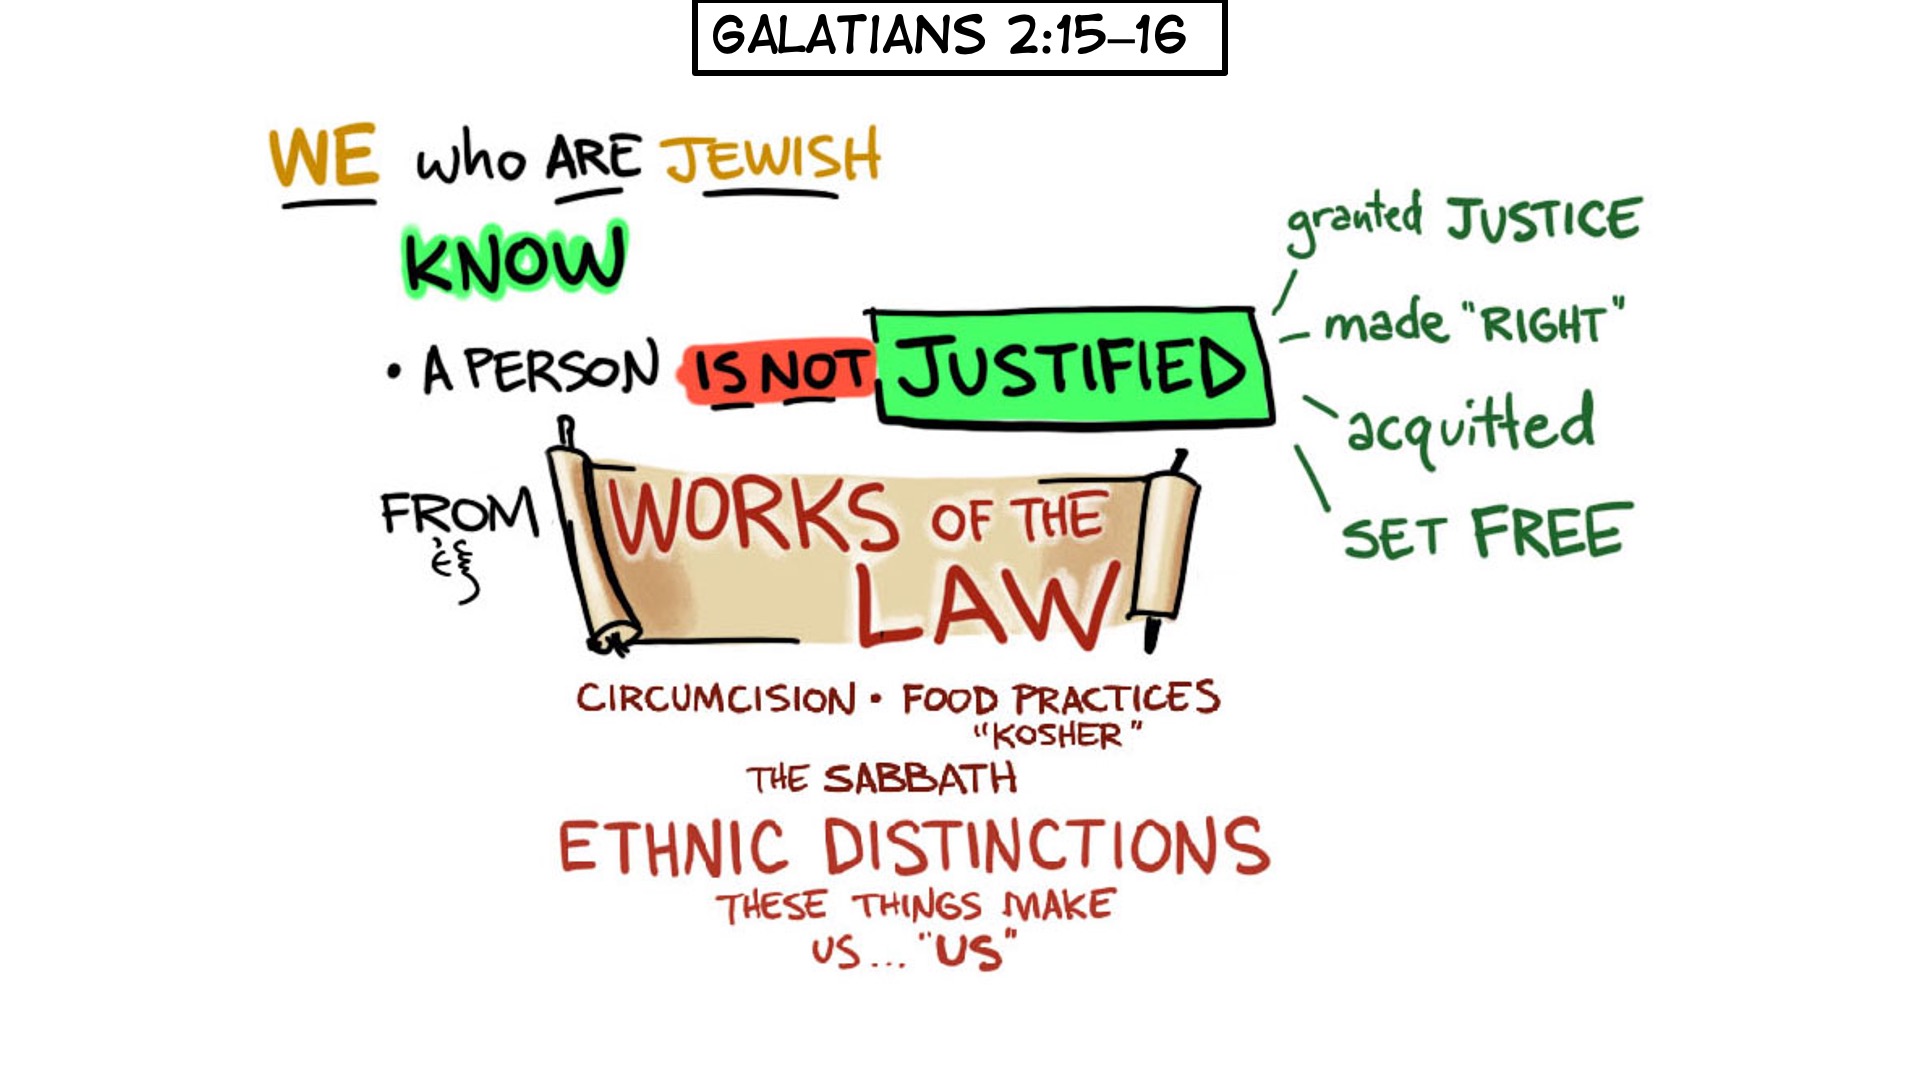 GALATIANS 2:15–16
WE who ARE JEWISH
KNOW
• A PERSON IS NOT JUSTIFIED
granted JUSTICE
made "RIGHT"
acquitted
SET FREE
FROM WORKS OF THE
ἐξ LAW
CIRCUMCISION • FOOD PRACTICES
"KOSHER"
THE SABBATH
ETHNIC DISTINCTIONS
THESE THINGS MAKE
US... "US"